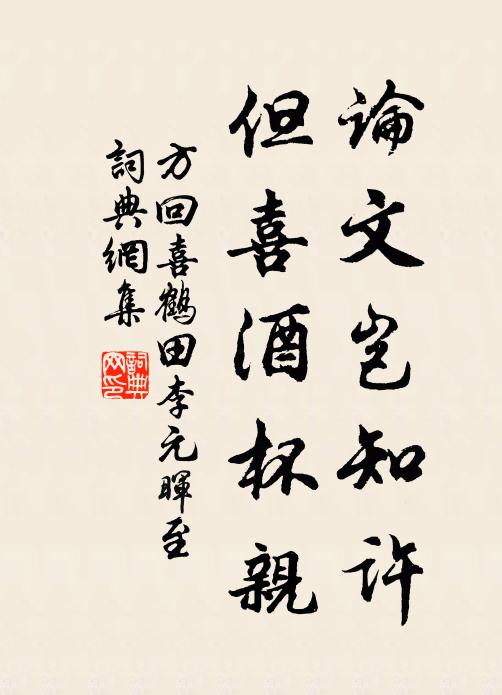 論文豈知許
但喜酒杯親
方回喜鶴田李元暉至
詞典網集
詞典网印